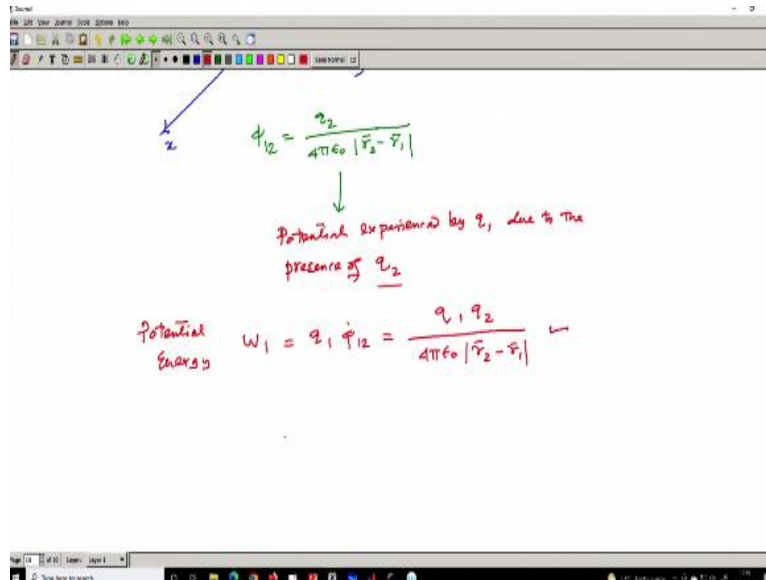 Journal
File Edit View Journal Tools Options Help
x
ϕ12 = q2 / 4πϵ0 |r̄2 - r̄1|
Potential experienced by q1 due to the
presence of q2
Potential
Energy
W1 = q1 ϕ12 = q1 q2 / 4πϵ0 |r̄2 - r̄1|
Page 18 of 20 Layer: Layer 1
Type here to search